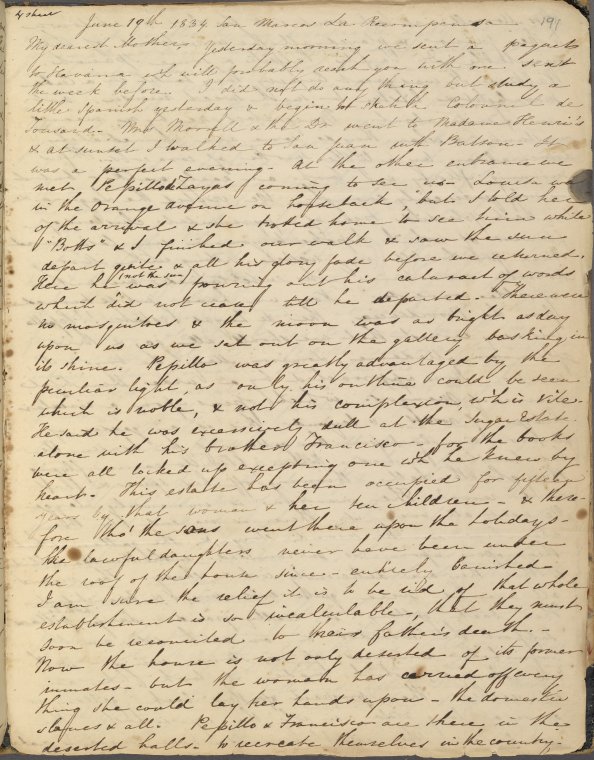 4 sheet
June 19th 1834 San Marcos La Recompensa
191
My dearest Mother, Yesterday morning we sent a paquete
to Havana wh will probably reach you with one sent
the week before. I did not do any thing but study a
little Spanish yesterday & begin to sketch Colonel de
Toward. Mrs Morrell & the Dr went to Madame Henri's
& at sunset I walked to San Juan with Batson. It
was a perfect evening. At the other entrance we
met Pepillo Chayas coming to see us. Louisa was
in the Orange Avenue on horseback, but I told her
of the arrival & she trotted home to see him while
"Botts" & I finished our walk & saw the sun
depart quite & all his glory fade before we returned.
Here he (not the sun) was pouring out his cataract of words
which did not cease till he departed. There were
no mosquitoes & the moon was as bright as day
upon us as we sat out on the gallery basking in
its shine. Pepillo was greatly advantaged by the
peculiar light, as only his outline could be seen
which is noble, & not his complexion, wh is vile.
He said he was excessively dull at the Sugar Estate
alone with his brother Francisco - for the books
were all locked up excepting one wh he knew by
heart. This estate has been occupied for fifteen
years by that woman & her ten children - & there-
fore tho' the sons went there upon the holidays -
the lawful daughters never have been under
the roof of the house since - entirely banished.
I am sure the relief it is to be rid of that whole
establishment is so incalculable, that they must
soon be reconciled to their father's death. -
Now the house is not only deserted of its former
inmates - but the woman has carried off every
thing she could lay her hands upon - the domestic
slaves & all. Pepillo & Francisco are there in the
deserted halls - to recreate themselves in the country -